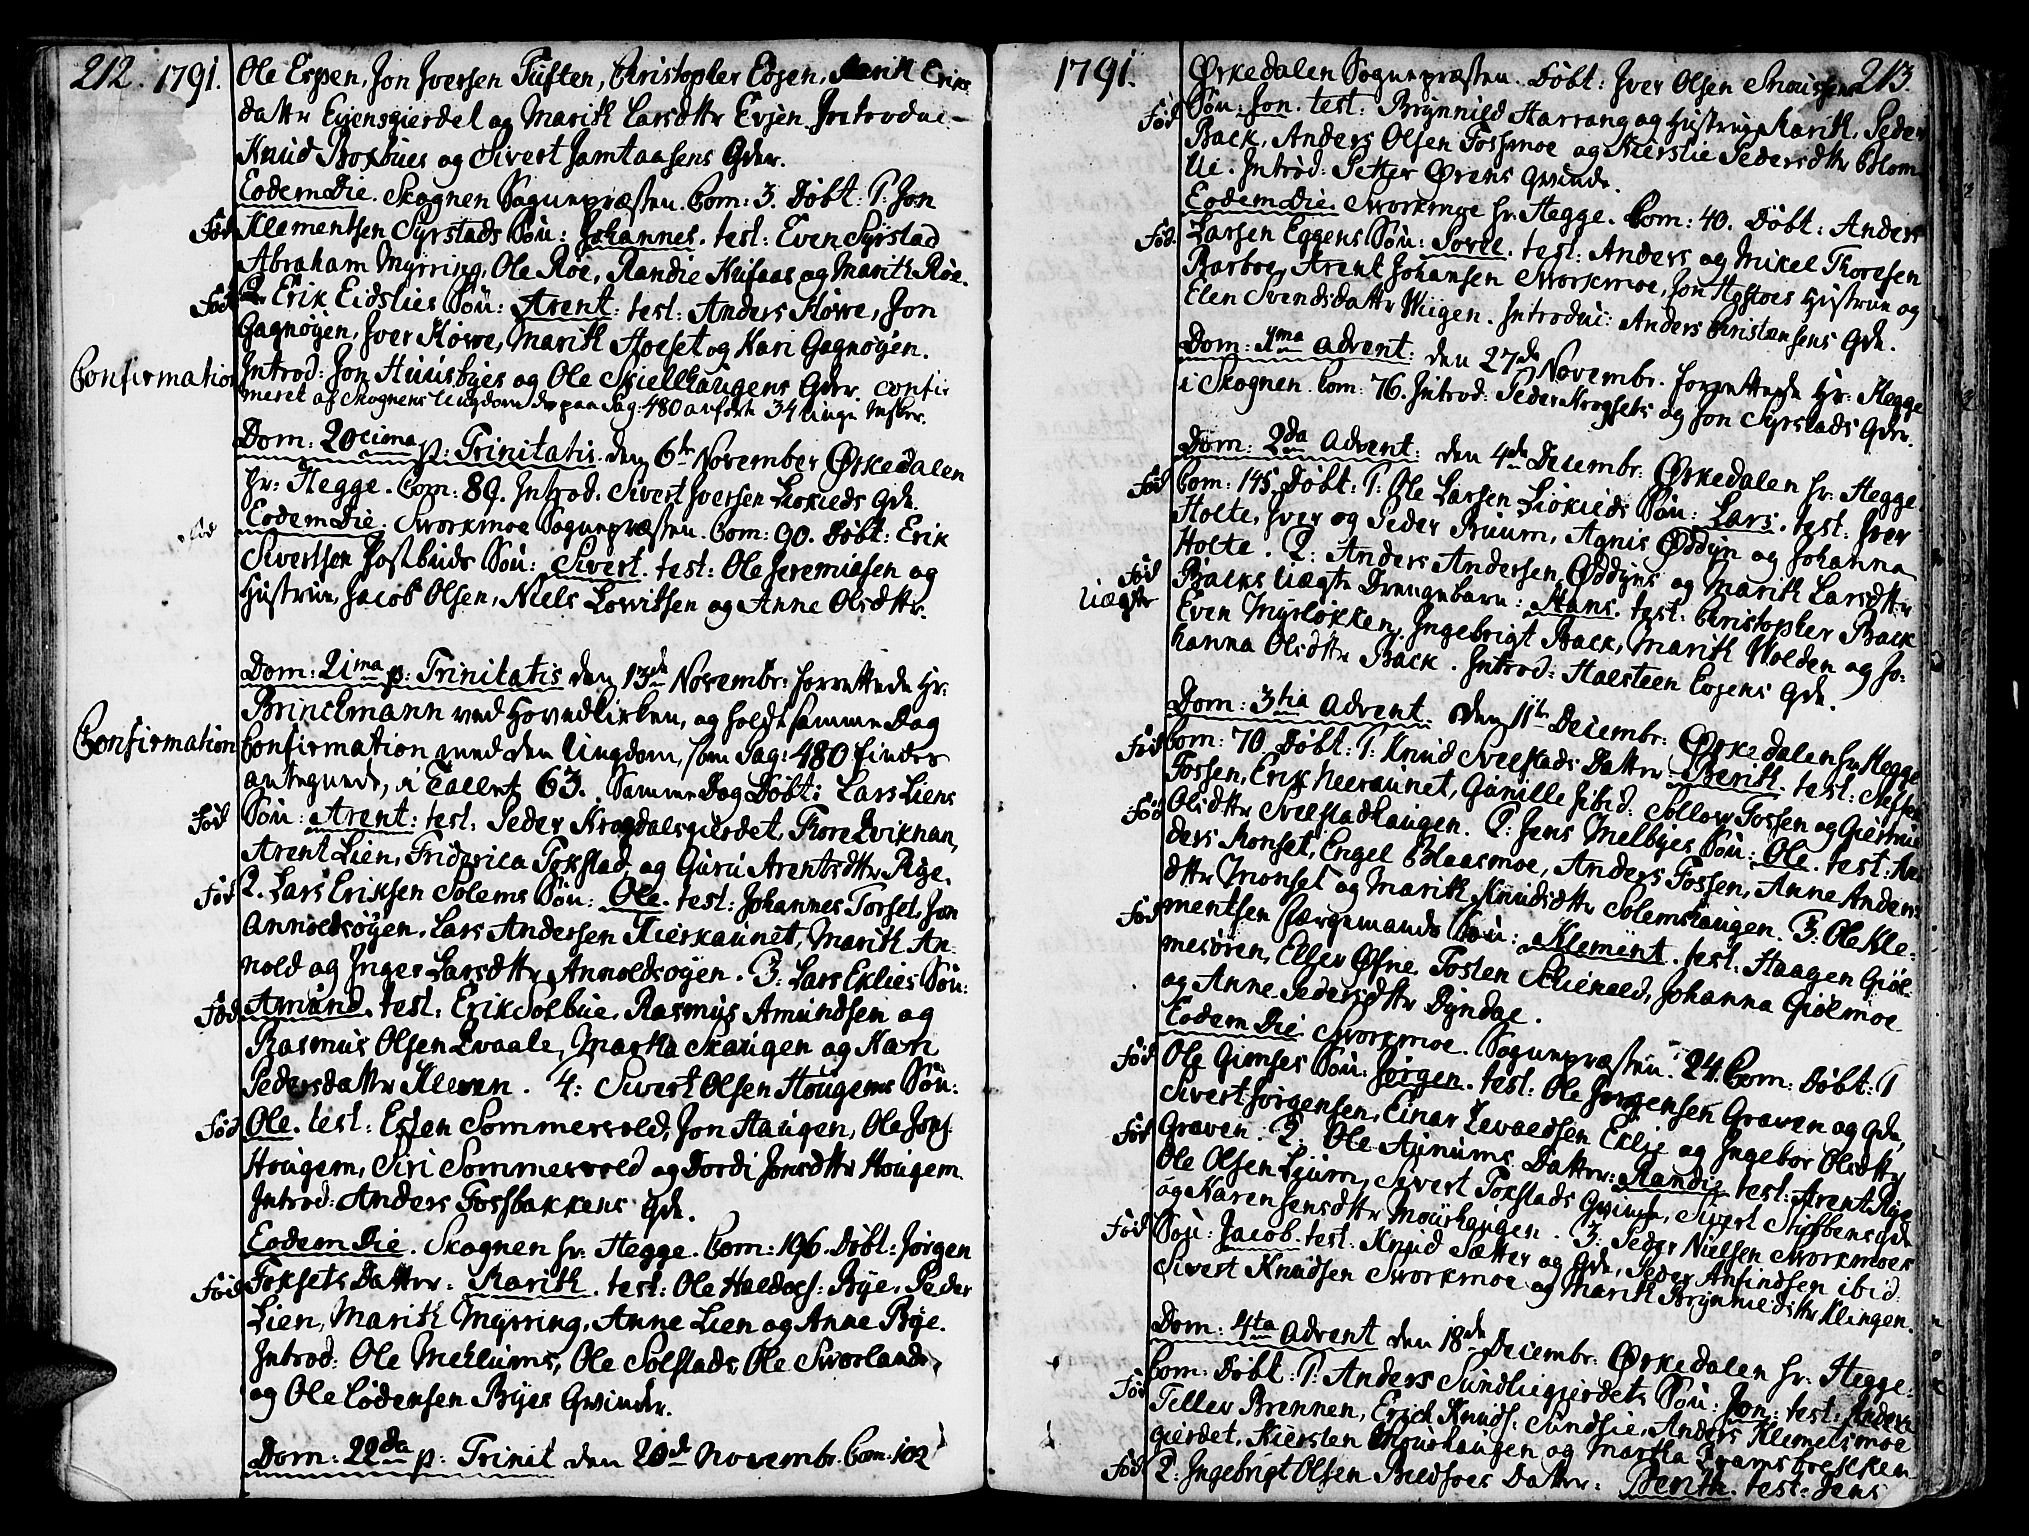 212. 1791.
Ole Espen, Jon Iversen Tuften, Christopher Evjen, Marit Eriks
datter Evjensgierdet og Marith Larsdttr Evjen. Introduc:
Knud Boxbües og Sivert Jamtaasens Qdr.
Eodem Die. Skognen Sognepræsten. Com: 3. Döbt: 1. Jon
Föd Klementsen Syrstads Sön: Johannes. test: Even Syrstad
Abraham Myrring, Ole Röe, Randie Hufaas og Marith Röe.
Föd 2. Erik Eidslies Sön: Arent. test: Anders Howe, Jon
Gagnöyen, Iver Howe, Marith Hoeset og Kari Gagnöyen.
Confirmation Introd: Jon Huusbyes og Ole Skiellhaugens Qdr. Confir
meret af Skognens Ungdom de paa Pag: 480 anförte 34 unge Mskr.
Dom: 20cima p: Trinitatis. den 6te November Ørkedalen
Hr: Hegge. Com: 89. Introd: Sivert Iversen Liokieds Qde.
Eodem Die. Sworkmoe Sognepræsten. Com: 90. Döbt: Erik
Föd Sivertsen Postbuds Sön: Sivert. test: Ole Jeremiesen og
Hustrue, Jacob Olsen, Niels Lowitsen og Anne Olsdttr.
Dom: 21ma p: Trinitatis den 13de Novembr: forrettede Hr:
Brinckmann ved Hovedkirken, og holdt samme Dag
Confirmation Confirmation med den Ungdom, som Pag: 480 findes
antegnede, i Tallet 63. Samme Dag Döbt: Lars Liens
Föd Sön: Arent: test: Peder Krogdalsgierdet, Thore Eviknan,
Arent Lien, Friderica Foxstad og Guru Arentsdttr Rige.
Föd 2. Lars Eriksen Solems Sön: Ole. test: Johannes Forset, Jon
Annoldsöyen, Lars Andersen Kierkaunet, Marith An-
nold og Inger Larsdttr Annoldsöyen. 3: Lars Eklies Sön:
Föd Amund. test: Erik Solbue, Rasmus Amundsen og
Rasmus Olsen Evaale, Martha Skaugen og Karn
Pedersdatter Kleven. 4: Sivert Olsen Hougems Sön:
Föd Ole. test: Esten Sommervold, Jon Haugen, Ole Jons:
Hougem, Siri Sommervold og Dordi Jonsdttr Hougem.
Introd: Anders Fossbakkens Qde.
Eodem Die. Skognen Hr: Hegge. Com: 196. Döbt: Jörgen
Föd Foksets Datter: Marith. test: Ole Haldos: Bye, Peder
Lien, Marith Myrring, Anne Lien og Anne Bye.
Introd: Ole Mehlums, Ole Solstads, Ole Sworlands,
og Ole Lodensen Byes Qvinder.
Dom: 22da p: Trinit den 20de Novembr. Com: 102
1791. 213.
Ørkedalen Sognepræsten. Döbt: Iver Olsen
Föd Sön: Jon. test: Brynnild Harrang og Hustrue Marith, Peder
Back, Anders Olsen Fossmoe og Kierstie Pedersdttr Blom
lie. Introd: Petter Ørens Qvinde.
Eodem Die. Sworkmoe Hr: Hegge. Com: 40. Döbt: Anders
Föd. Larsen Eggens Sön: Sovel. test: Anders og Mikel Thoresen
Barboe, Arent Johansen Sworkmoe, Jon Hostoes Hustrue og
Elen Svendsdattr Wiigen. Introduc: Anders Christensens Qde.
Dom: 1ma Advent: den 27de Novembr. forrettede Hr: Hegge
i Skognen. Com: 76. Introd: Peder Krogsets og Jon Syrstads Qdr.
Dom: 2da Advent: den 4de Decembr: Ørkedalen Hr: Hegge.
Föd Com: 145. Döbt: 1: Ole Larsen Liokieds Sön: Lars. test: Iver
Holte, Iver og Peder Buum, Agnis Øddyn og Johanna
Föd Holte. 2: Anders Andersen Øddyns og Marith Larsdttr
Uægte Backs Uægte Drengebarn: Hans. test: Christopher Back
Even Myrlökken, Ingebrigt Back, Marith Wolden og Jo-
hanna Olsdttr Back. Introd: Halsteen Evjens Qde.
Dom: 3tia Advent. den 11te Decembr: Ørkedalen Hr Hegge
Föd Com: 70. Döbt: 1: Knud Svelstads Datter: Berith. test:
Fossen, Erik Neeraunet, Gunille ibid: Sollow Fossen og
Föd Olsdttr Svelstadhaugen. 2: Jens Melbyes Sön: Ole. test: An
ders Monset, Engel Blaasmoe, Anders Fossen, Anne Anders
dttr Monset og Marith Knudsdttr Solemshaugen. 3: Ole Kle-
Föd mentsen Færgemands Sön: Klement. test: Haagen Giöl-
mesören, Eller Øfne, Tosten Schienald, Johanna Giölmoe
og Anne Pedersdttr Dyndal.
Eodem Die Sworkmoe. Sognepræsten. 24. Com: Döbt: 1
Föd Ole Gimses Sön: Jörgen. test: Ole Jörgensen Graven og Qde,
Sivert Jörgensen, Einar Levaldsen Eklie og Ingebor Olsdttr
Föd Graven. 2: Ole Aunums Datter: Randie. test: Arent Rige
Ole Olsen Lium, Sivert Foxstads Qvinde, Sivert Stubbens Qde
og Karen Jensdttr Mourhaugen. 3: Peder Nielsen Sworkmoes
Föd Sön: Jacob. test: Knud Sætter og Qde, Peder Anfindsen ibid:
Sivert Knudsen Sworkmoe og Marith Brynnildsdttr Klingen.
Dom: 4ta Advent den 18de Decembr: Ørkedalen Hr: Hegge.
Föd Com: Döbt: 1: Anders Sundliegierdets Sön: Jon: test: Anders
Teller Brennen, Erich Knuds: Sundlie, Anders Klemetsmoe
gierdet, Kiersten Mourhaugen og Martha Bramsbrekken
Föd 2: Ingebrigt Olsen Buedsoes Datter: Berith. test: Jens